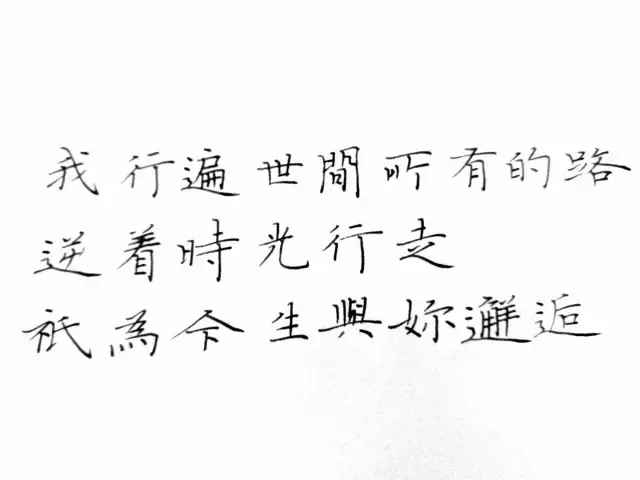 我行遍世間所有的路
逆着時光行走
祇為今生與妳邂逅